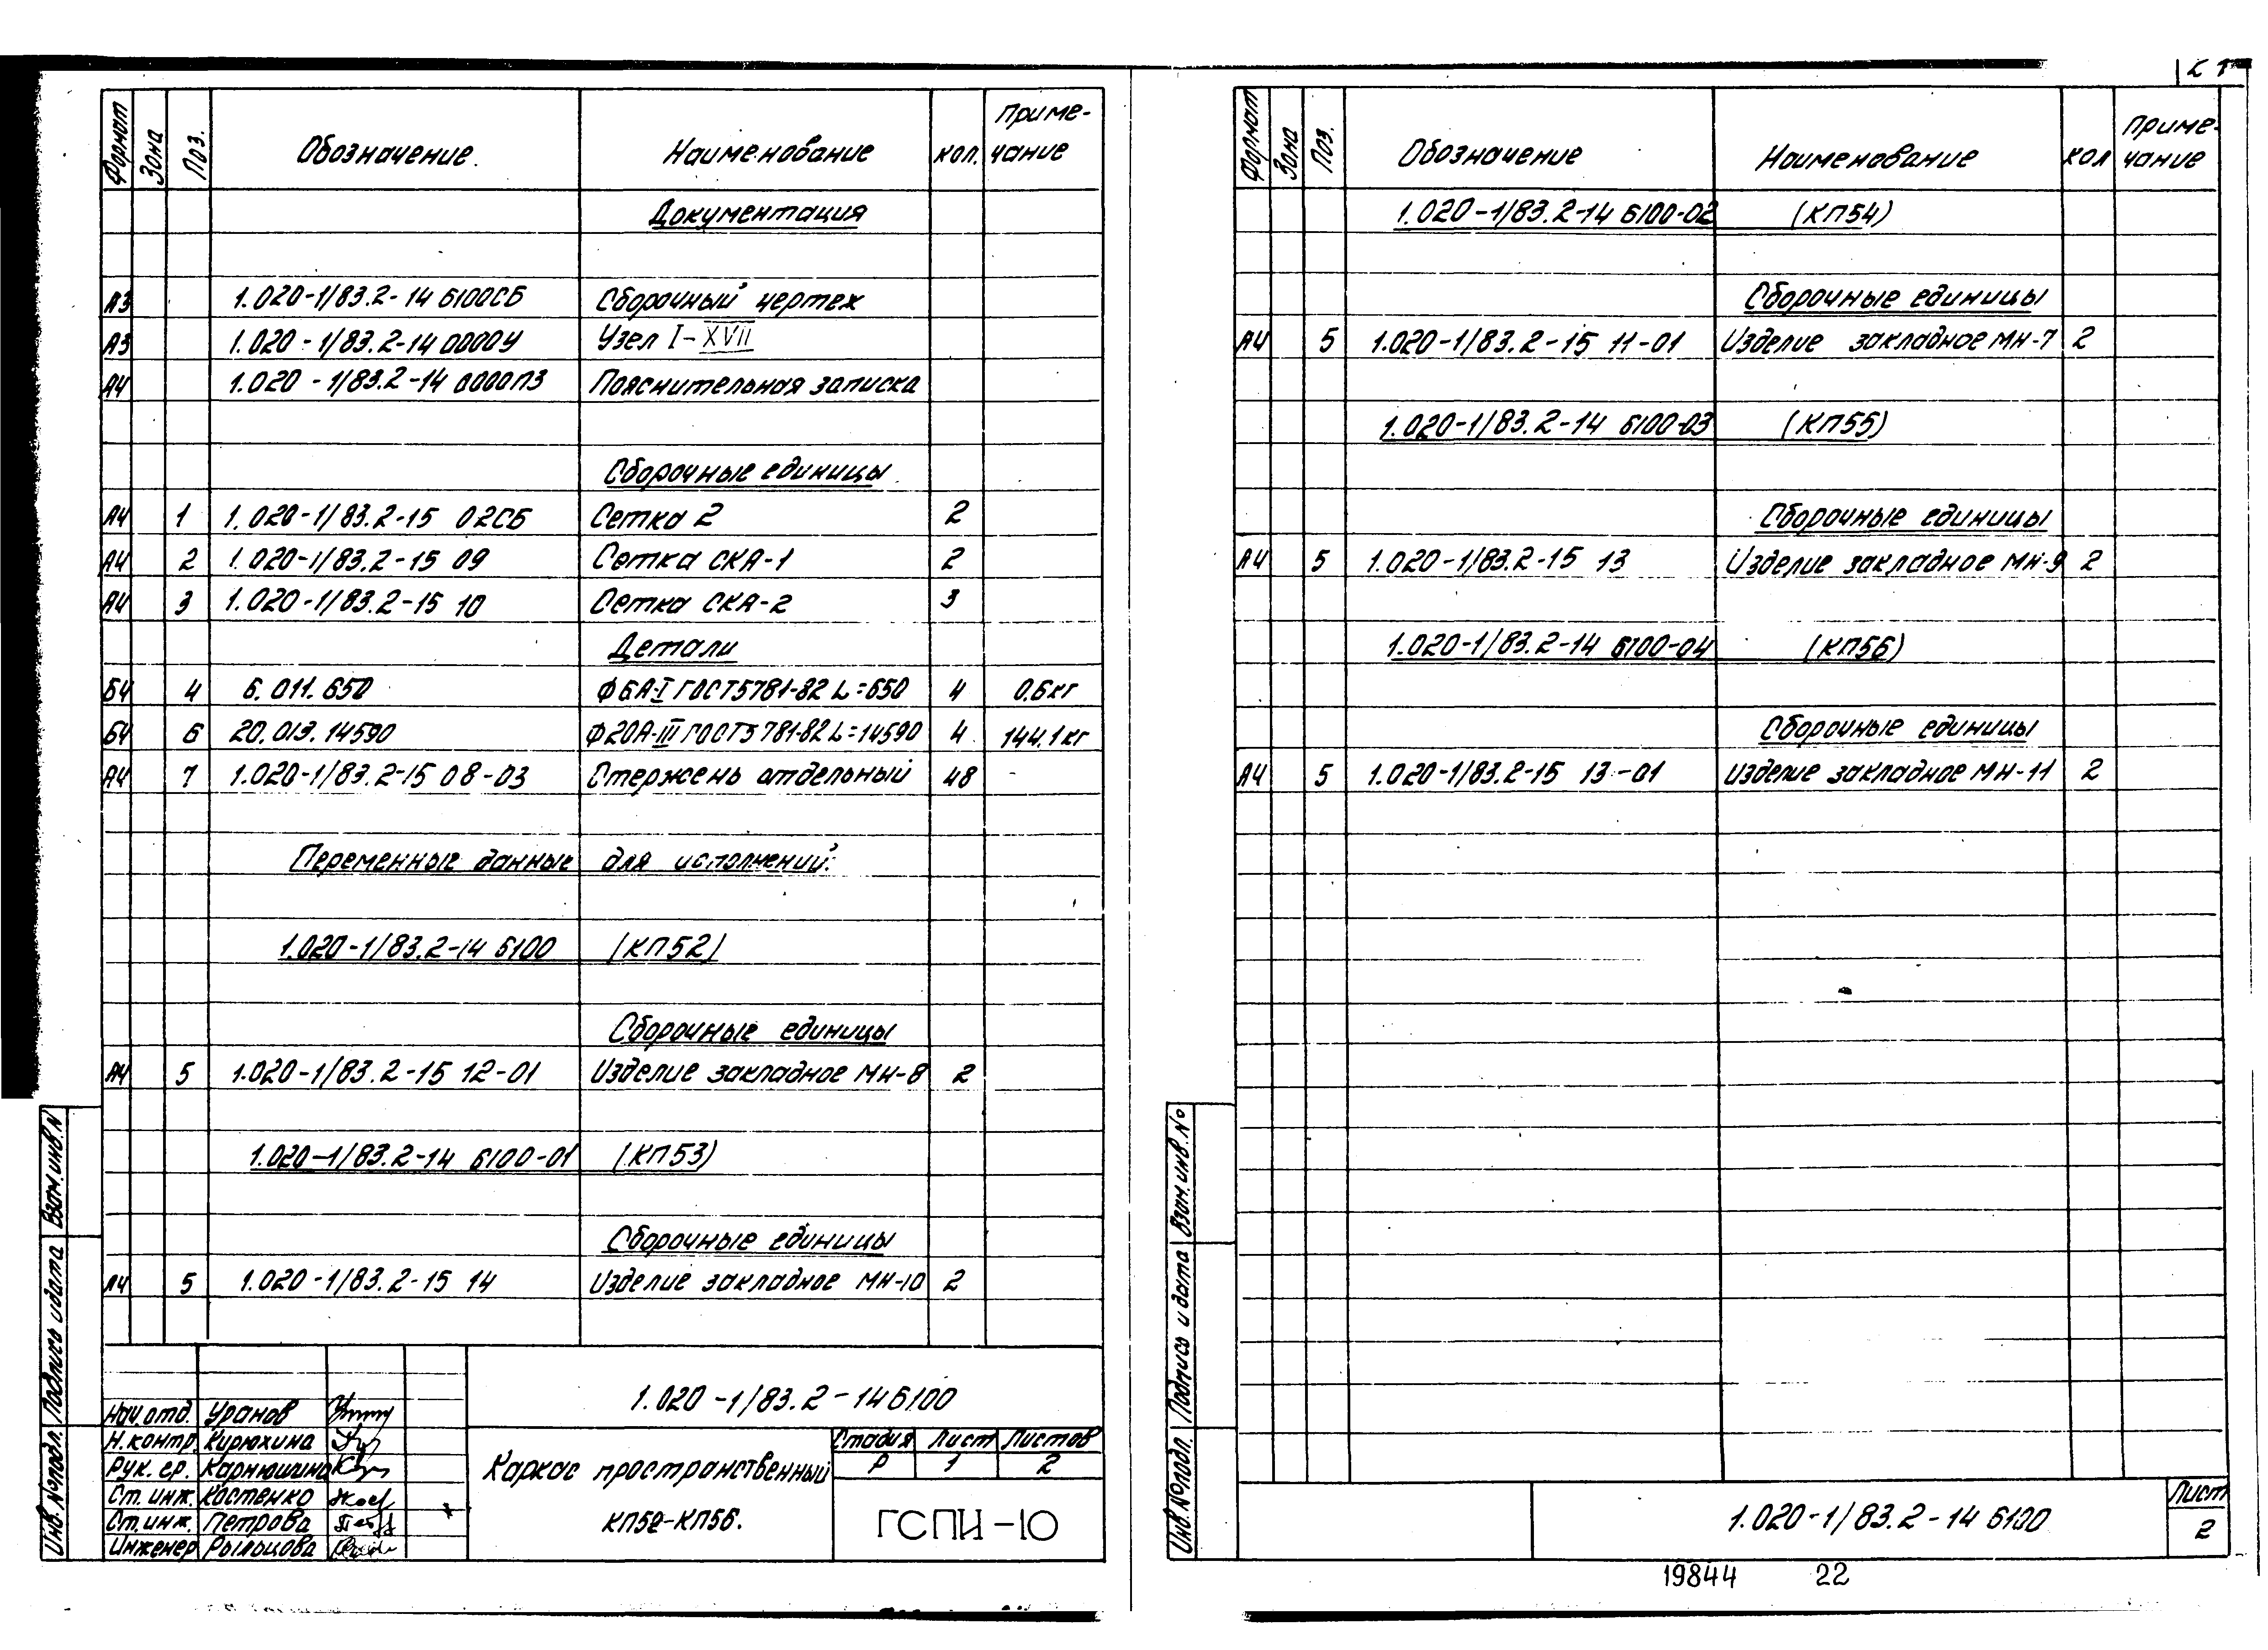 Формат Зона Поз. Обозначение Наименование Кол. Приме-
чание
Документация
А3 1.020-1/83.2-14 6100СБ Сборочный чертеж
А3 1.020-1/83.2-14 0000У Узел I-XVII
А4 1.020-1/83.2-14 0000ПЗ Пояснительная записка
Сборочные единицы
А4 1 1.020-1/83.2-15 02СБ Сетка 2 2
А4 2 1.020-1/83.2-15 09 Сетка СКА-1 2
А4 3 1.020-1/83.2-15 10 Сетка СКА-2 3
Детали
Б4 4 6.011.650 Ф6А-I ГОСТ5781-82 L=650 4 0.6кг
Б4 6 20.013.14590 Ф20А-III ГОСТ5781-82 L=14590 4 144.1кг
А4 7 1.020-1/83.2-15 08-03 Стержень отдельный 48 -
Переменные данные для исполнений:
1.020-1/83.2-14 6100 (КП52)
Сборочные единицы
А4 5 1.020-1/83.2-15 12-01 Изделие закладное МН-8 2
1.020-1/83.2-14 6100-01 (КП53)
Сборочные единицы
А4 5 1.020-1/83.2-15 14 Изделие закладное МН-10 2
Инв.№подл. Подпись и дата Взам.инв.N
1.020-1/83.2-14 6100
Нач.отд. Уранов
Н.контр. Кирюхина
Рук.гр. Карнюшина
Ст.инж. Костенко
Ст.инж. Петрова
Инженер Рыльцова
Каркас пространственный
КП52-КП56.
Стадия Лист Листов
Р 1 2
ГСПИ-10
Формат Зона Поз. Обозначение Наименование Кол Приме-
чание
1.020-1/83.2-14 6100-02 (КП54)
Сборочные единицы
А4 5 1.020-1/83.2-15 11-01 Изделие закладное МН-7 2
1.020-1/83.2-14 6100-03 (КП55)
Сборочные единицы
А4 5 1.020-1/83.2-15 13 Изделие закладное МН-9 2
1.020-1/83.2-14 6100-04 (КП56)
Сборочные единицы
А4 5 1.020-1/83.2-15 13-01 Изделие закладное МН-11 2
Инв.№подл. Подпись и дата Взам.инв.№
1.020-1/83.2-14 6100
Лист
2
19844 22